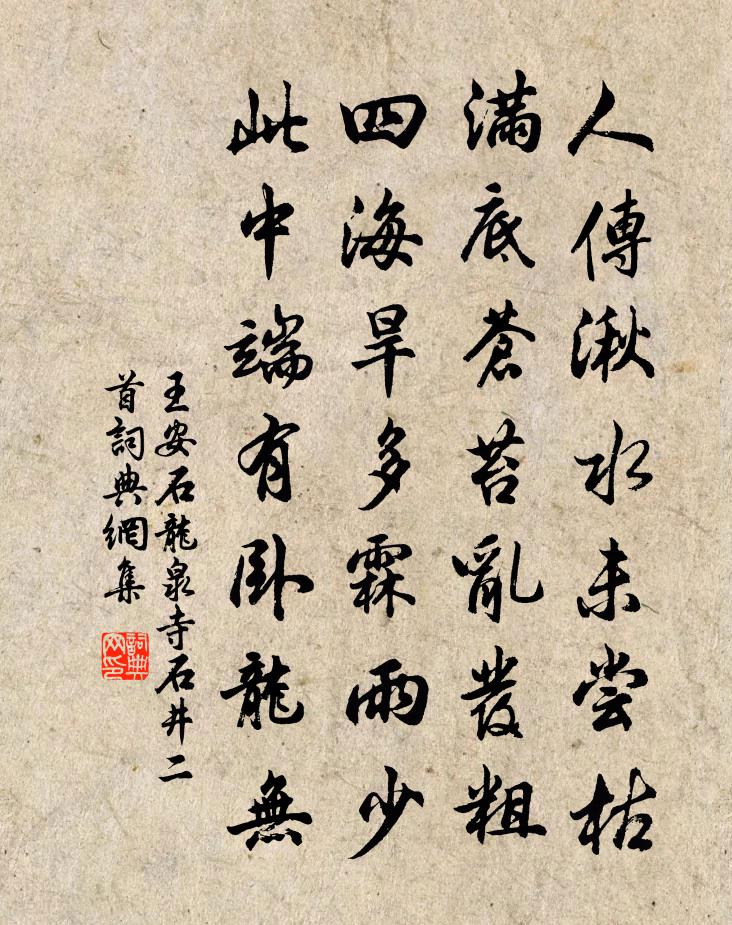 人傳湫水未嘗枯
滿底蒼苔亂髮粗
四海旱多霖雨少
此中端有卧龍無
王安石龍泉寺石井二
首詞典網集
詞典
网印